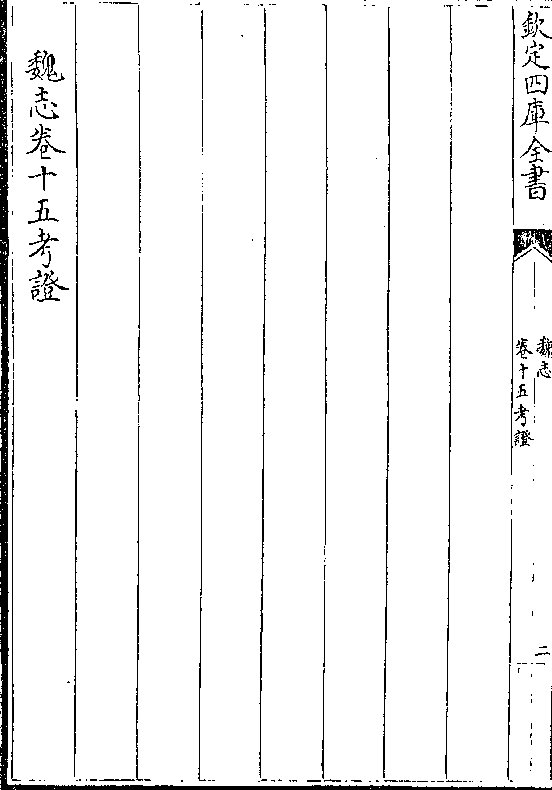 欽定四庫全書
魏志
卷十五考證
二
魏志卷十五考證